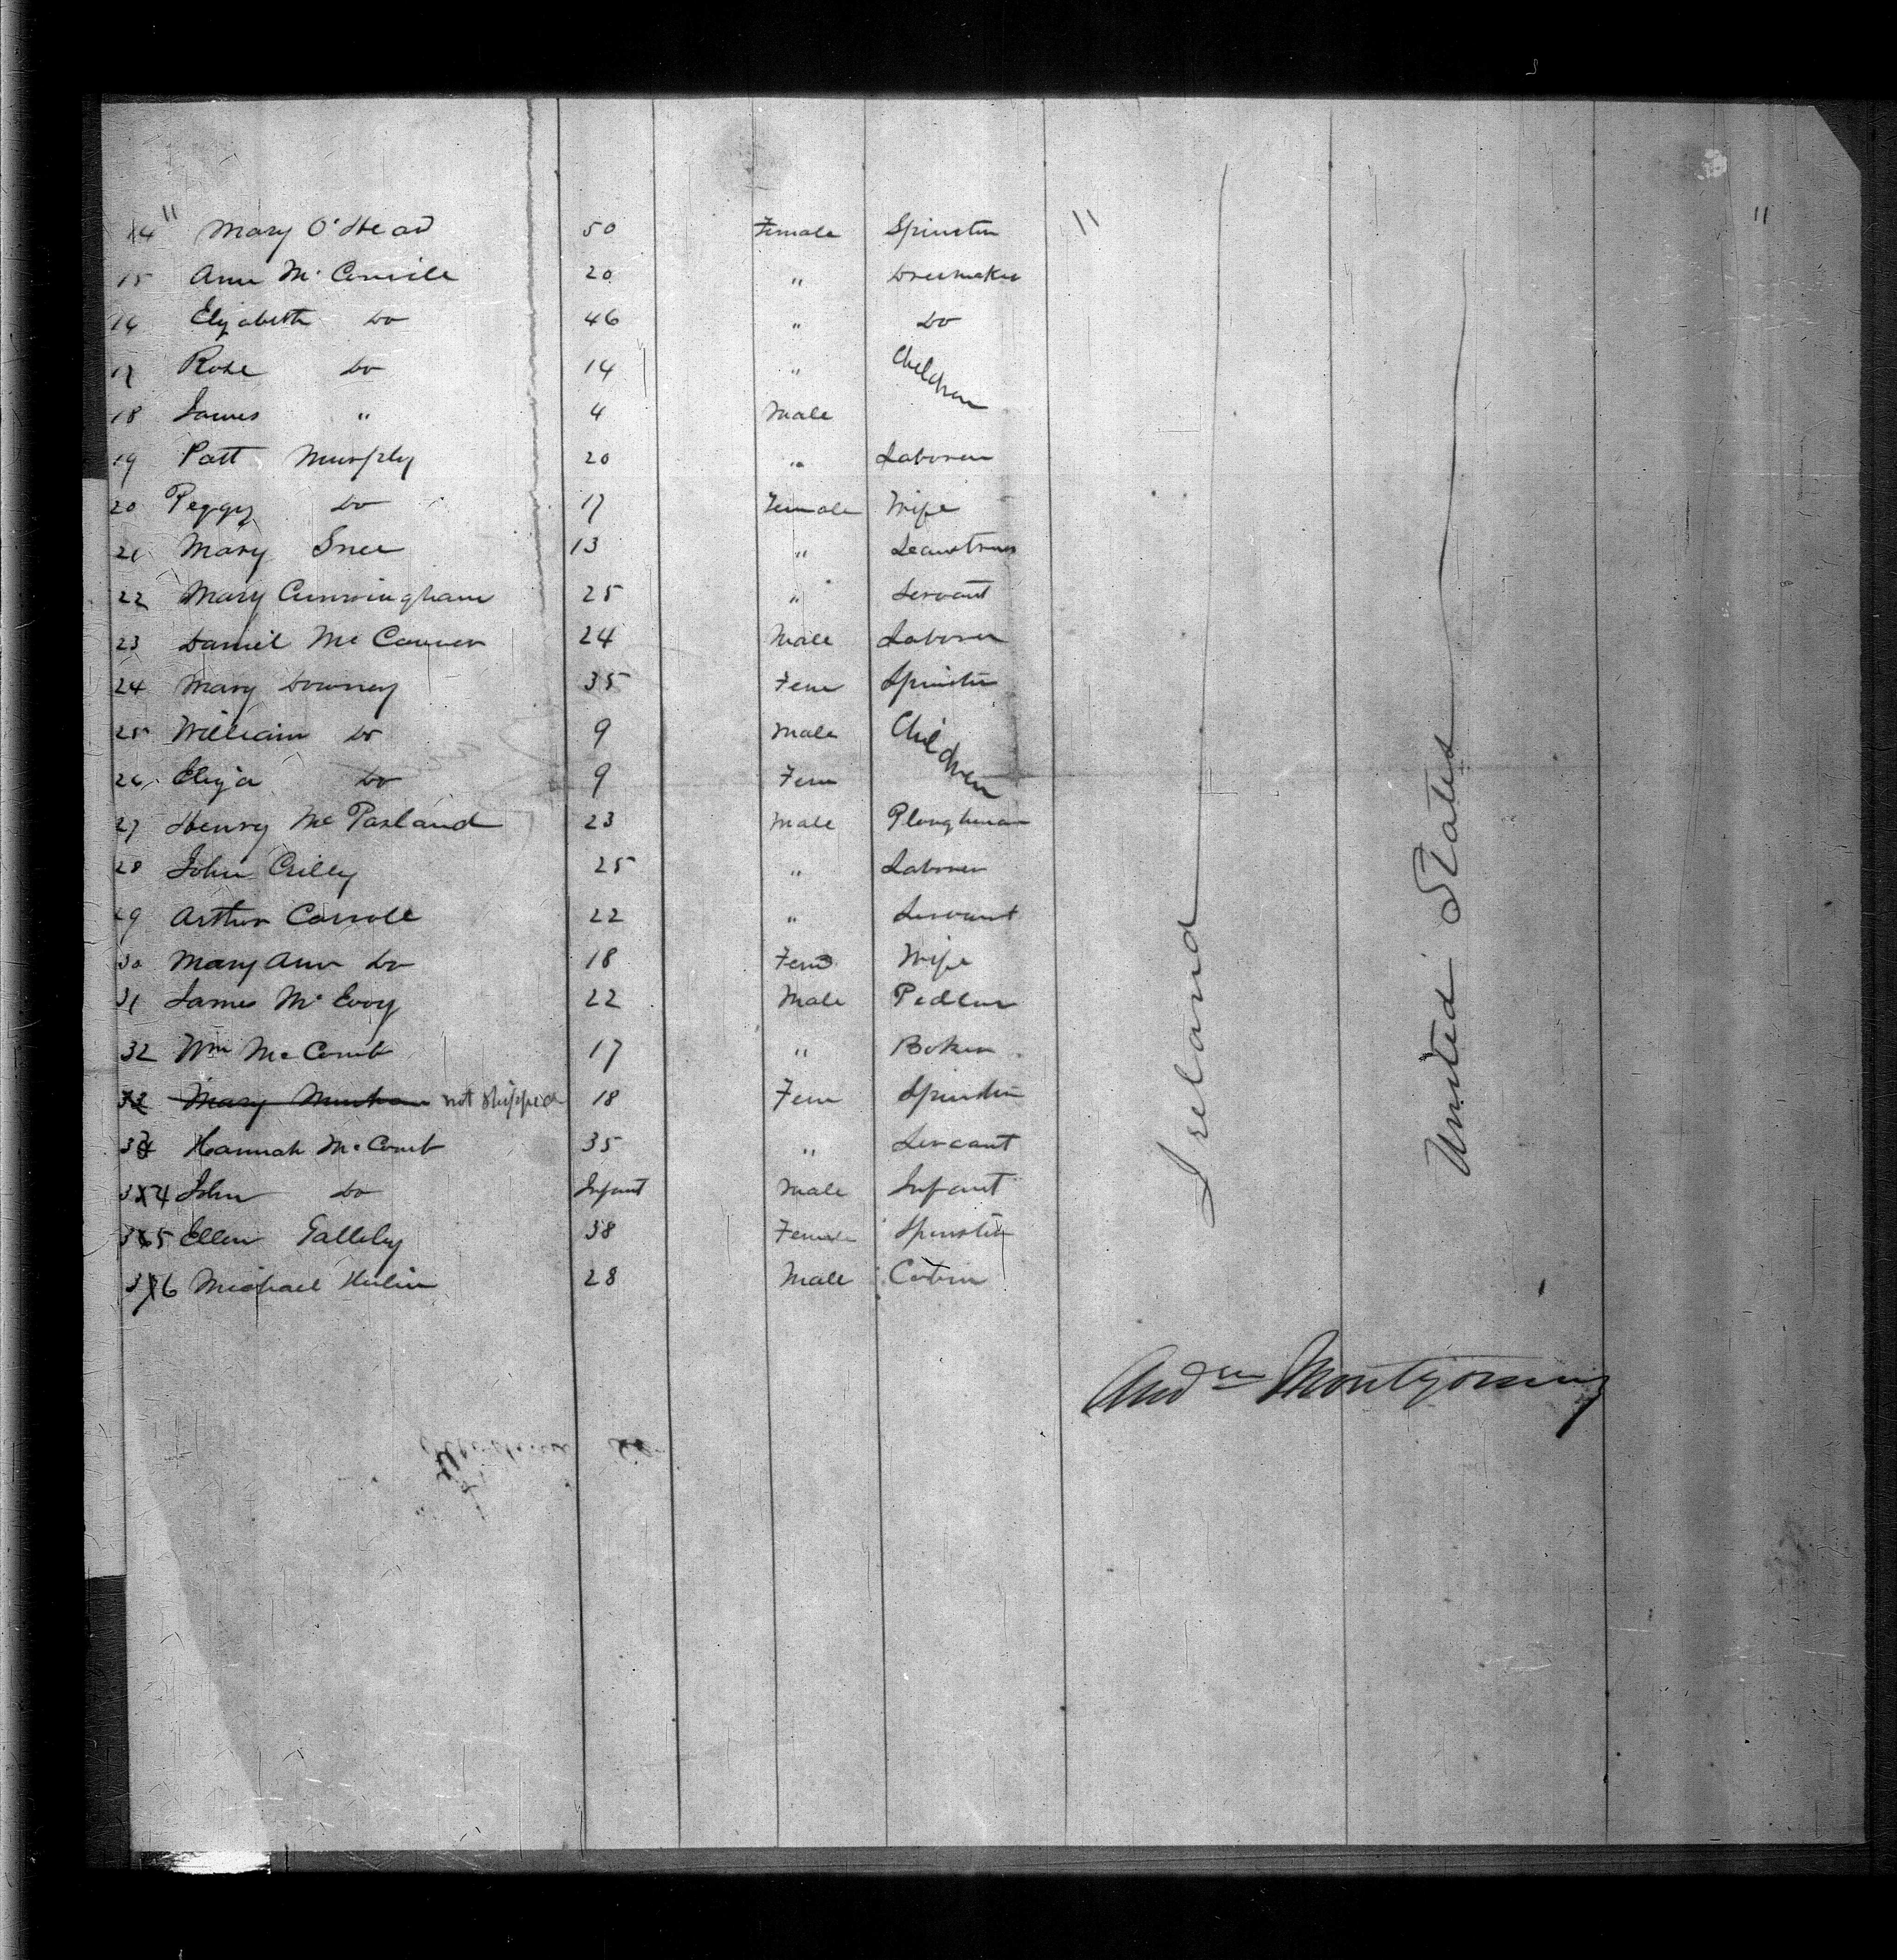 14 " Mary O'Head 50 Female Spinster "
15 Ann Mc Conville 20 " Dressmaker
16 Elizabeth Do 46 " Do
17 Rose Do 14 " Children
18 James " 4 Male
19 Patt Murphy 20 " Laborer
20 Peggy Do 17 Female Wife
21 Mary Snee 13 " Seamstress
22 Mary Cunningham 25 " Servant
23 Daniel Mc Conner 24 Male Laborer
24 Mary Downey 35 Fem Spinster
25 William Do 9 Male Children
26 Eliza Do 9 Fem
27 Henry Mc Parland 23 Male Ploughman
28 John Crilly 25 " Laborer
29 Arthur Carroll 22 " Servant
30 Mary Ann Do 18 Fem Wife
31 James Mc Evoy 22 Male Pedlar
32 Wm McComb 17 " Baker
33 Mary not Shipped 18 Fem Spinster
34 Hannah McComb 35 " Servant
34 John Do Infant Male Infant
35 Ellen 38 Female Spinster
36 Michael 28 Male
Ireland
United States
"
Andw Montgomery